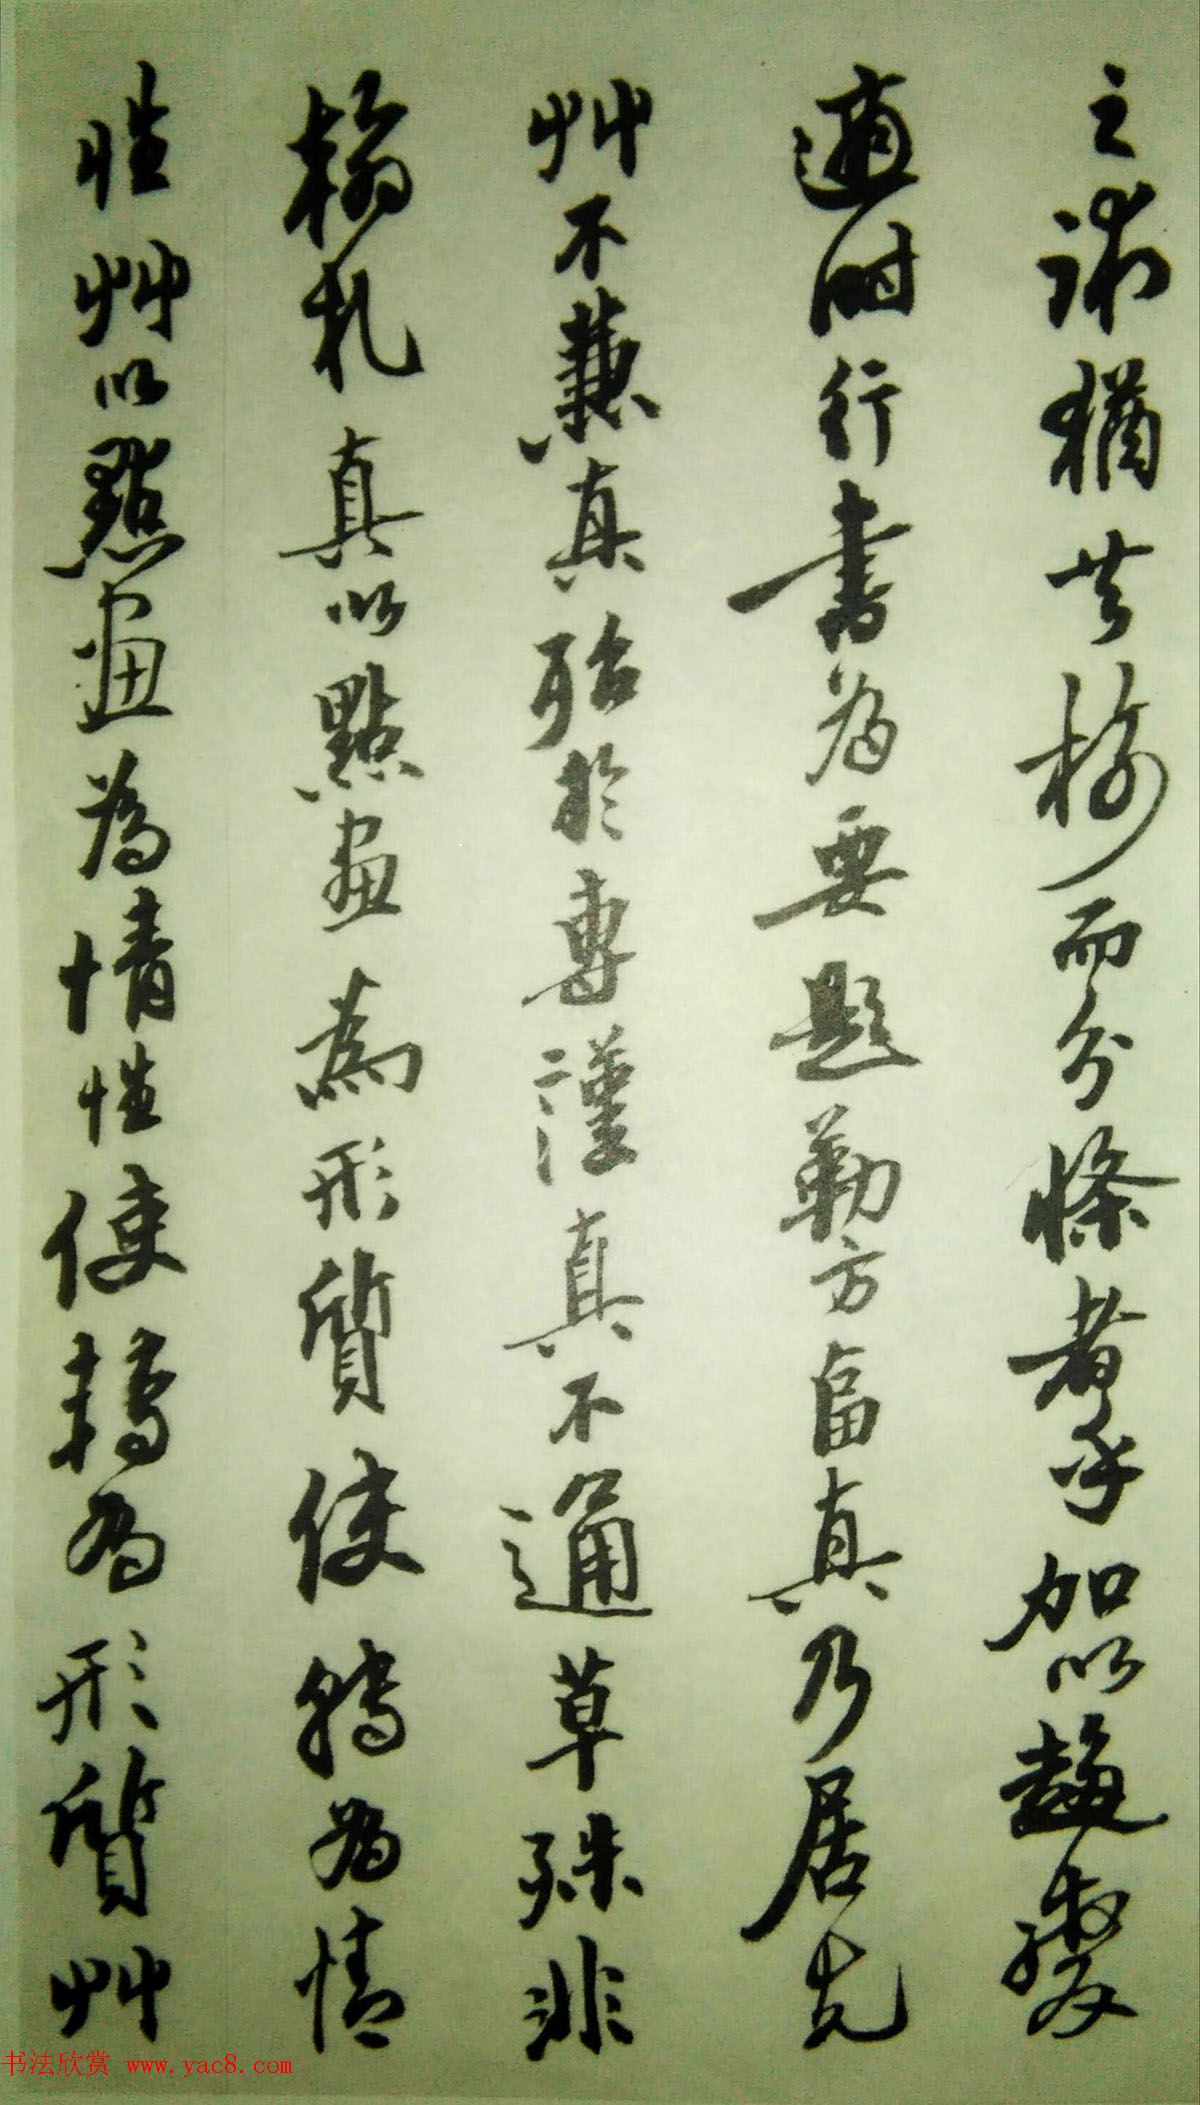 之訹猶共樹而分條者乎加以趨變
適時行書為要題勒方畐真乃居先
艸不兼真殆於專謹真不通草殊非
翰札真以點畫為形質使轉為情
性艸以點畫為情性使轉為形質艸
书法欣赏 www.yac8.com